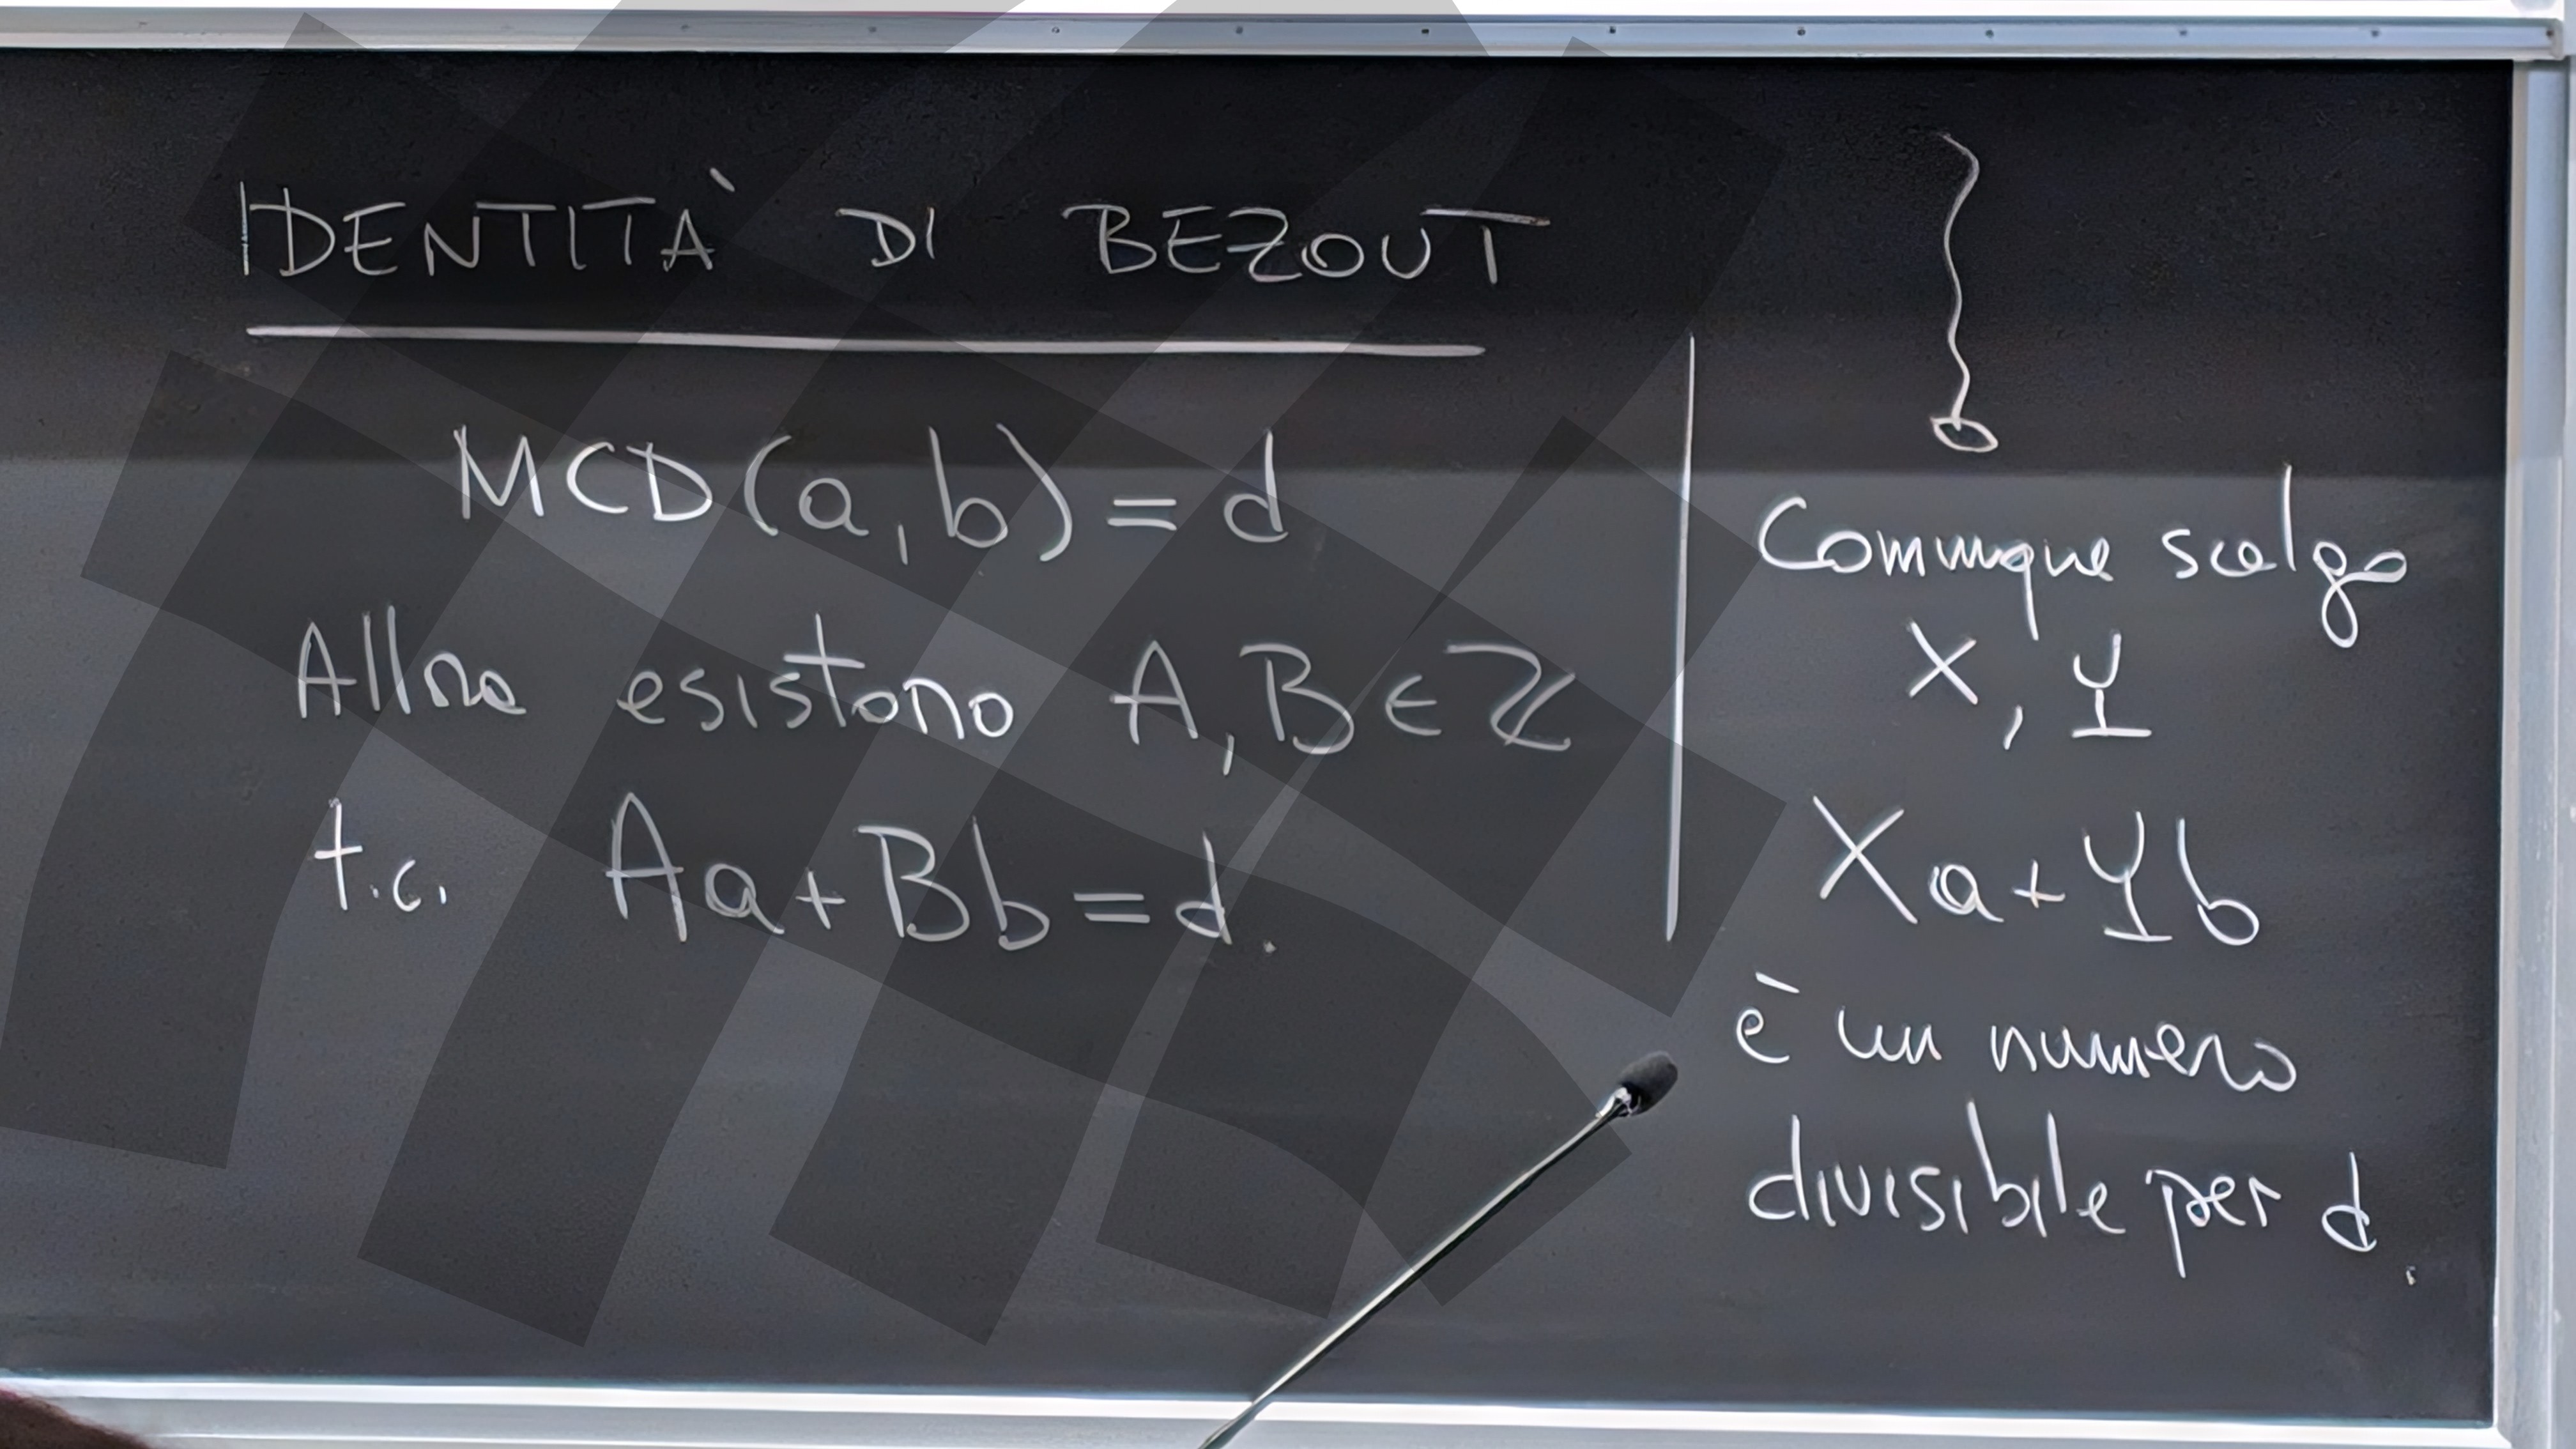 IDENTITÀ DI BEZOUT
MCD(a,b) = d
Allora esistono A,B ∈ ℤ
t.c. Aa+Bb = d.
Comunque scelgo
X, Y
Xa+Yb
è un numero
divisibile per d.